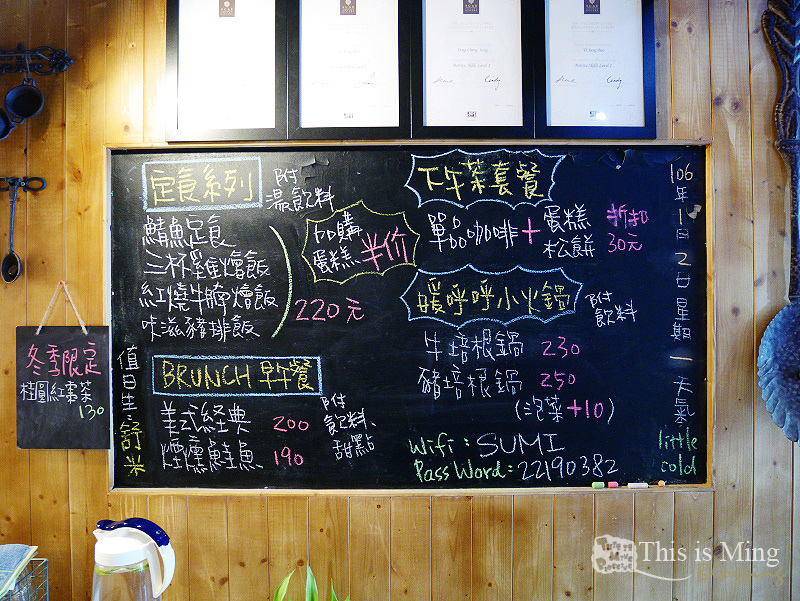 定食系列
附
湯飲料
鯖魚定食
三杯雞燴飯
紅燒牛腩燴飯
咔滋豬排飯
220元
加購
蛋糕
半价
BRUNCH 早午餐
美式経典
200
煙燻鮭魚
190
附
飲料、
甜點
下午茶套餐
單品咖啡+
蛋糕
松餅
折扣
30元
暖呼呼小火鍋
附
飲料
牛培根鍋 230
豬培根鍋 250
(泡菜+10)
Wifi: SUMI
PassWord: 22190382
106年1月2日星期一天氣
little
cold
值日生 舒米
冬季限定
桂圓紅棗茶
130
This is Ming